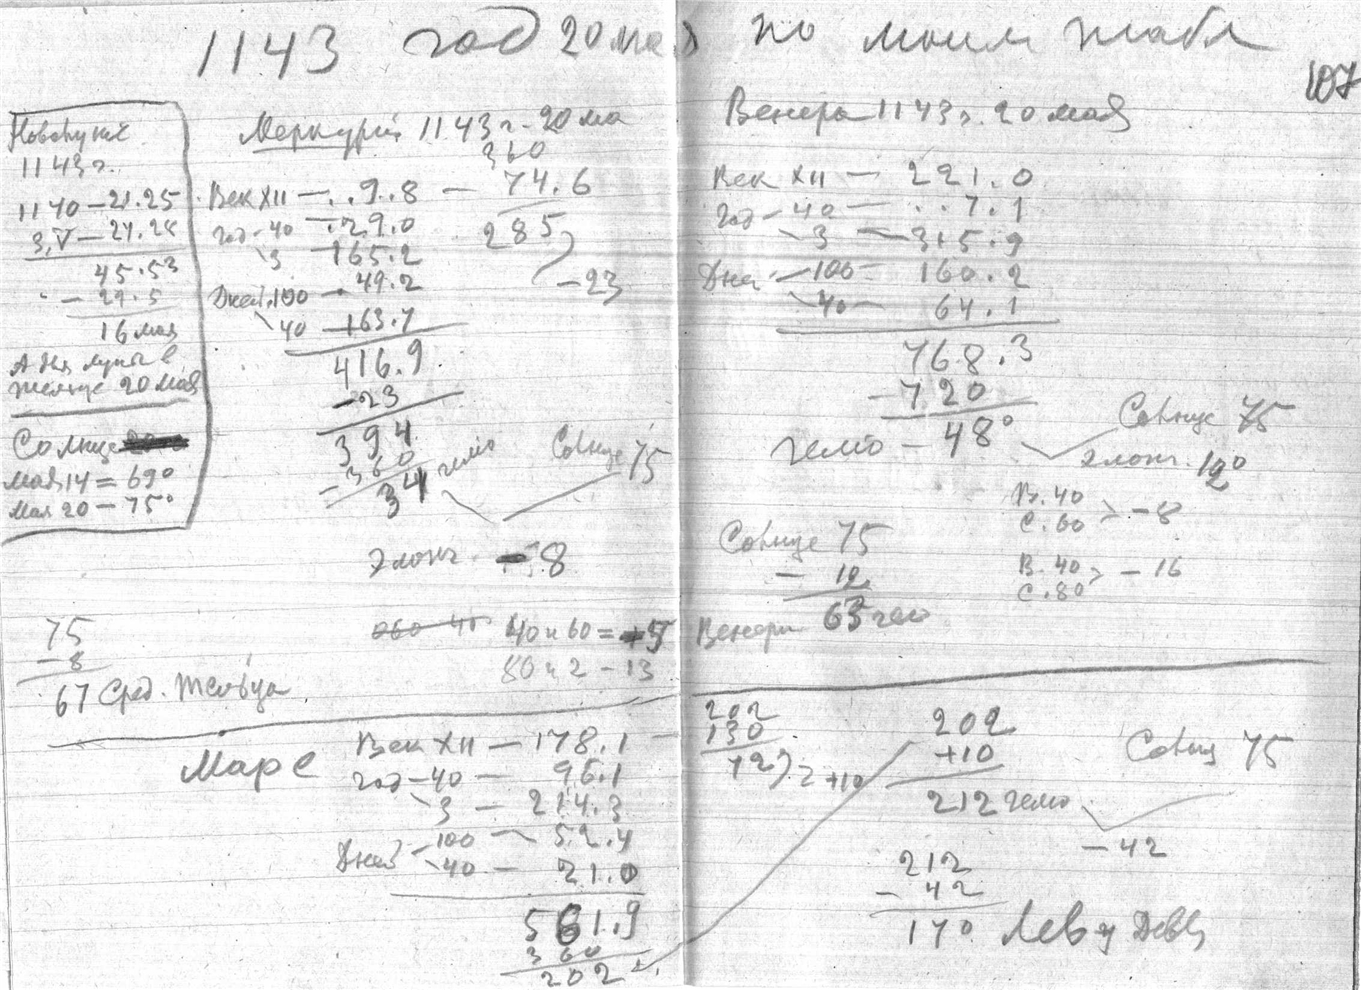 1143 год 20 мая по моим табл
107
Новолуние
1143 г.
1140 — 21.25
3, V — 24.28
45.53
— 29.5
16 мая
луны в
Тельце 20 мая
Солнце
мая 14 = 69°
мая 20 — 75°
Меркурий 1143 г. 20 ма
Век XII — . . 9.8 —
год - 40 — . 29.0
3 — 165.2
Дней . 100 — 49.2
40 — 163.7
416.9
— 23
394
— 360
34 гелио
360
74.6
285
— 23
Солнце 75
Элонг. — 8
40 и 60 = +5
80 и 2 — 13
75
— 8
67 Сред. Тельца
Венера 1143 г. 20 мая
Век XII — 221.0
год - 40 — . . 7.1
3 — 315.9
Дней — 100 — 160.2
40 — 64.1
768.3
— 720
гелио — 48°
Солнце 75
элонг. 12°
В. 40
С. 60 > — 8
В. 40
С. 80 > — 16
Солнце 75
— 12
63 гео
Венера
Марс
Век XII — 178.1
год — 40 — 96.1
3 — 214.3
Дней — 100 — 52.4
40 — 21.0
561.9
360
202
202
130
72) 2 +10
202
+10
212 гелио
Солнц 75
— 42
212
— 42
170 Лев и Дева